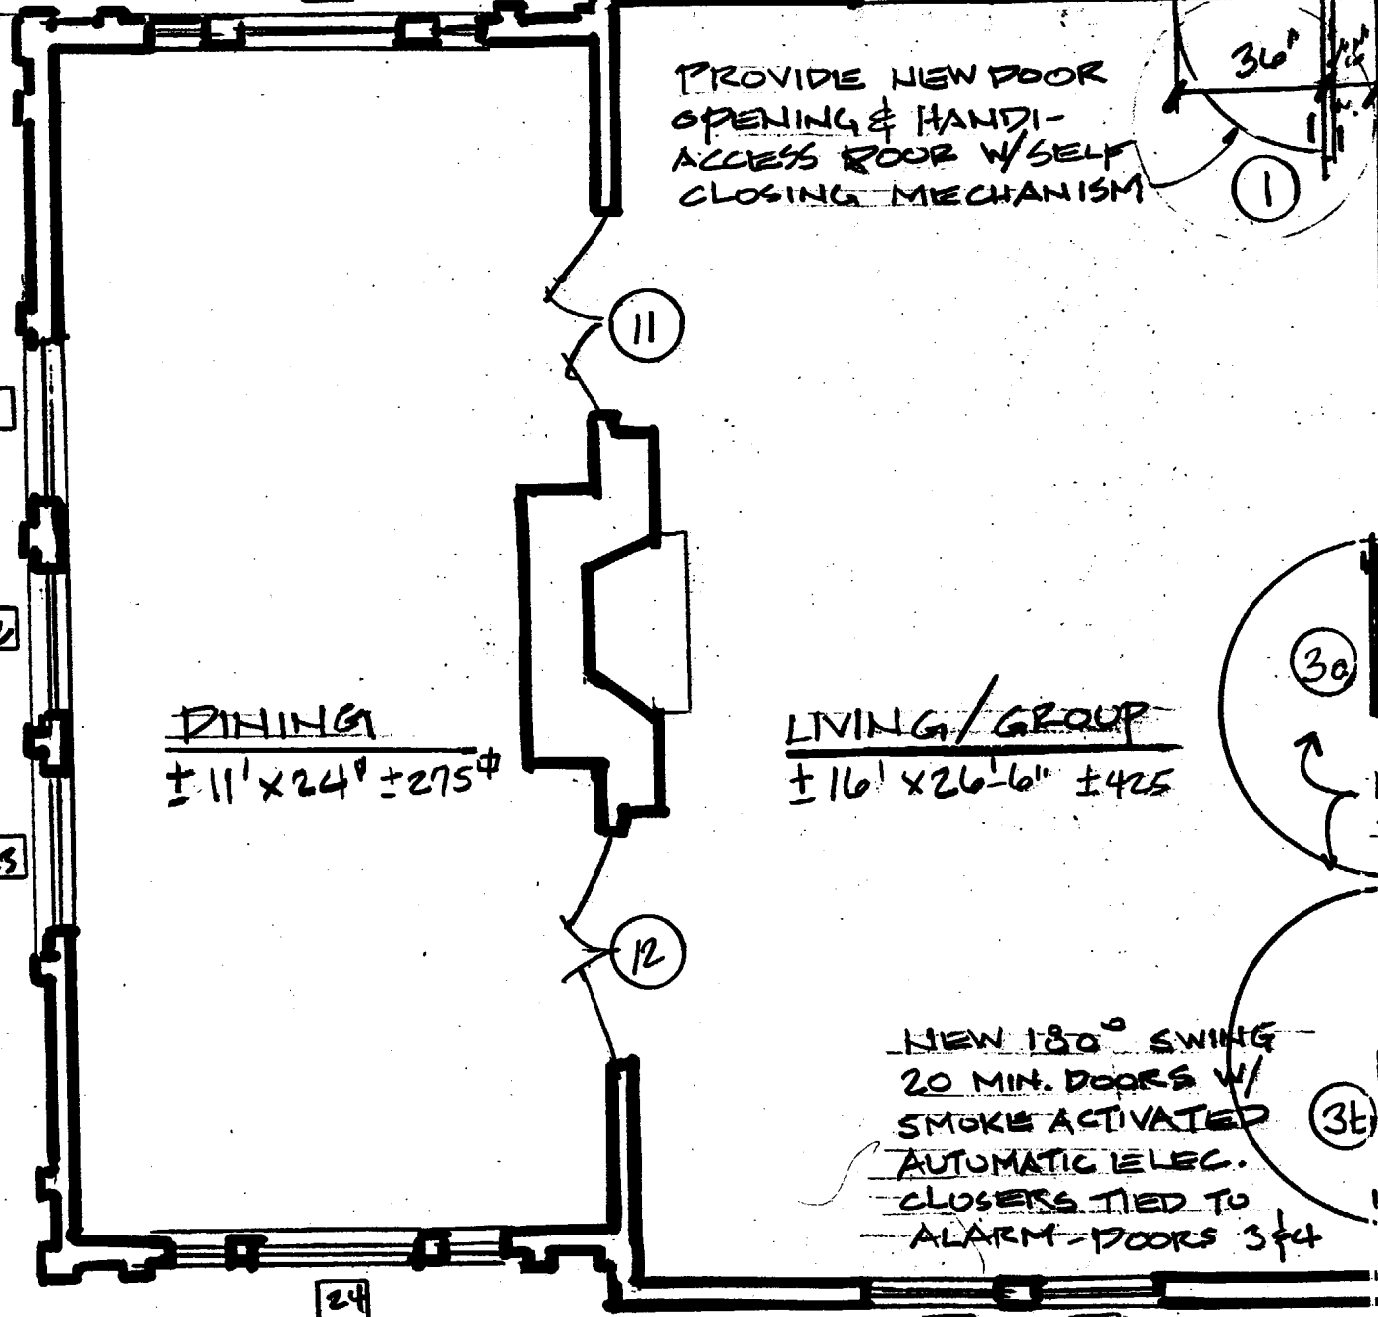 PROVIDE NEW DOOR
OPENING & HANDI-
ACCESS DOOR W/SELF
CLOSING MECHANISM
36"
1
11
3a
DINING
± 11' x 24' ± 275⌽
LIVING/GROUP
± 16' x 26'-6" ± 425
12
NEW 180° SWING
20 MIN. DOORS W/
SMOKE ACTIVATED
AUTOMATIC ELEC.
CLOSERS TIED TO
ALARM - DOORS 3 & 4
24